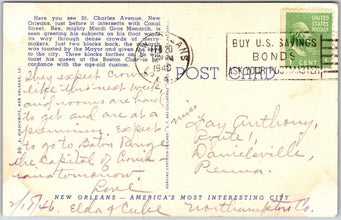 Here you see St. Charles Avenue, New
Orleans, just before it intersects with Canal
Street. Rex, mighty Mardi Gras Monarch, is
seen greeting his subjects as his float winds
its way through dense crowds of merry-
makers. Just two blocks back, the monarch
was toasted by the Mayor and given the key
to the City. Three blocks further he will
toast his queen at the Boston Club in
cordance with the age-old custom.
FEB 20
1946
BUY U.S. SAVINGS
BONDS
ASK YOUR POSTMASTER
UNITED STATES
POSTAGE
1 CENT
POST CARD
They expect crowds
like this next week
and rooms are hard
to get and are at a
premium. Expect
to go to Baton Rouge
the Capitol of Louisi-
ana tomorrow.
Love
2/18/46. Elda &
Miss
Fay Anthony,
Route 1,
Danielsville,
Penna.
Northampton Co.
NEW ORLEANS - AMERICA'S MOST INTERESTING CITY